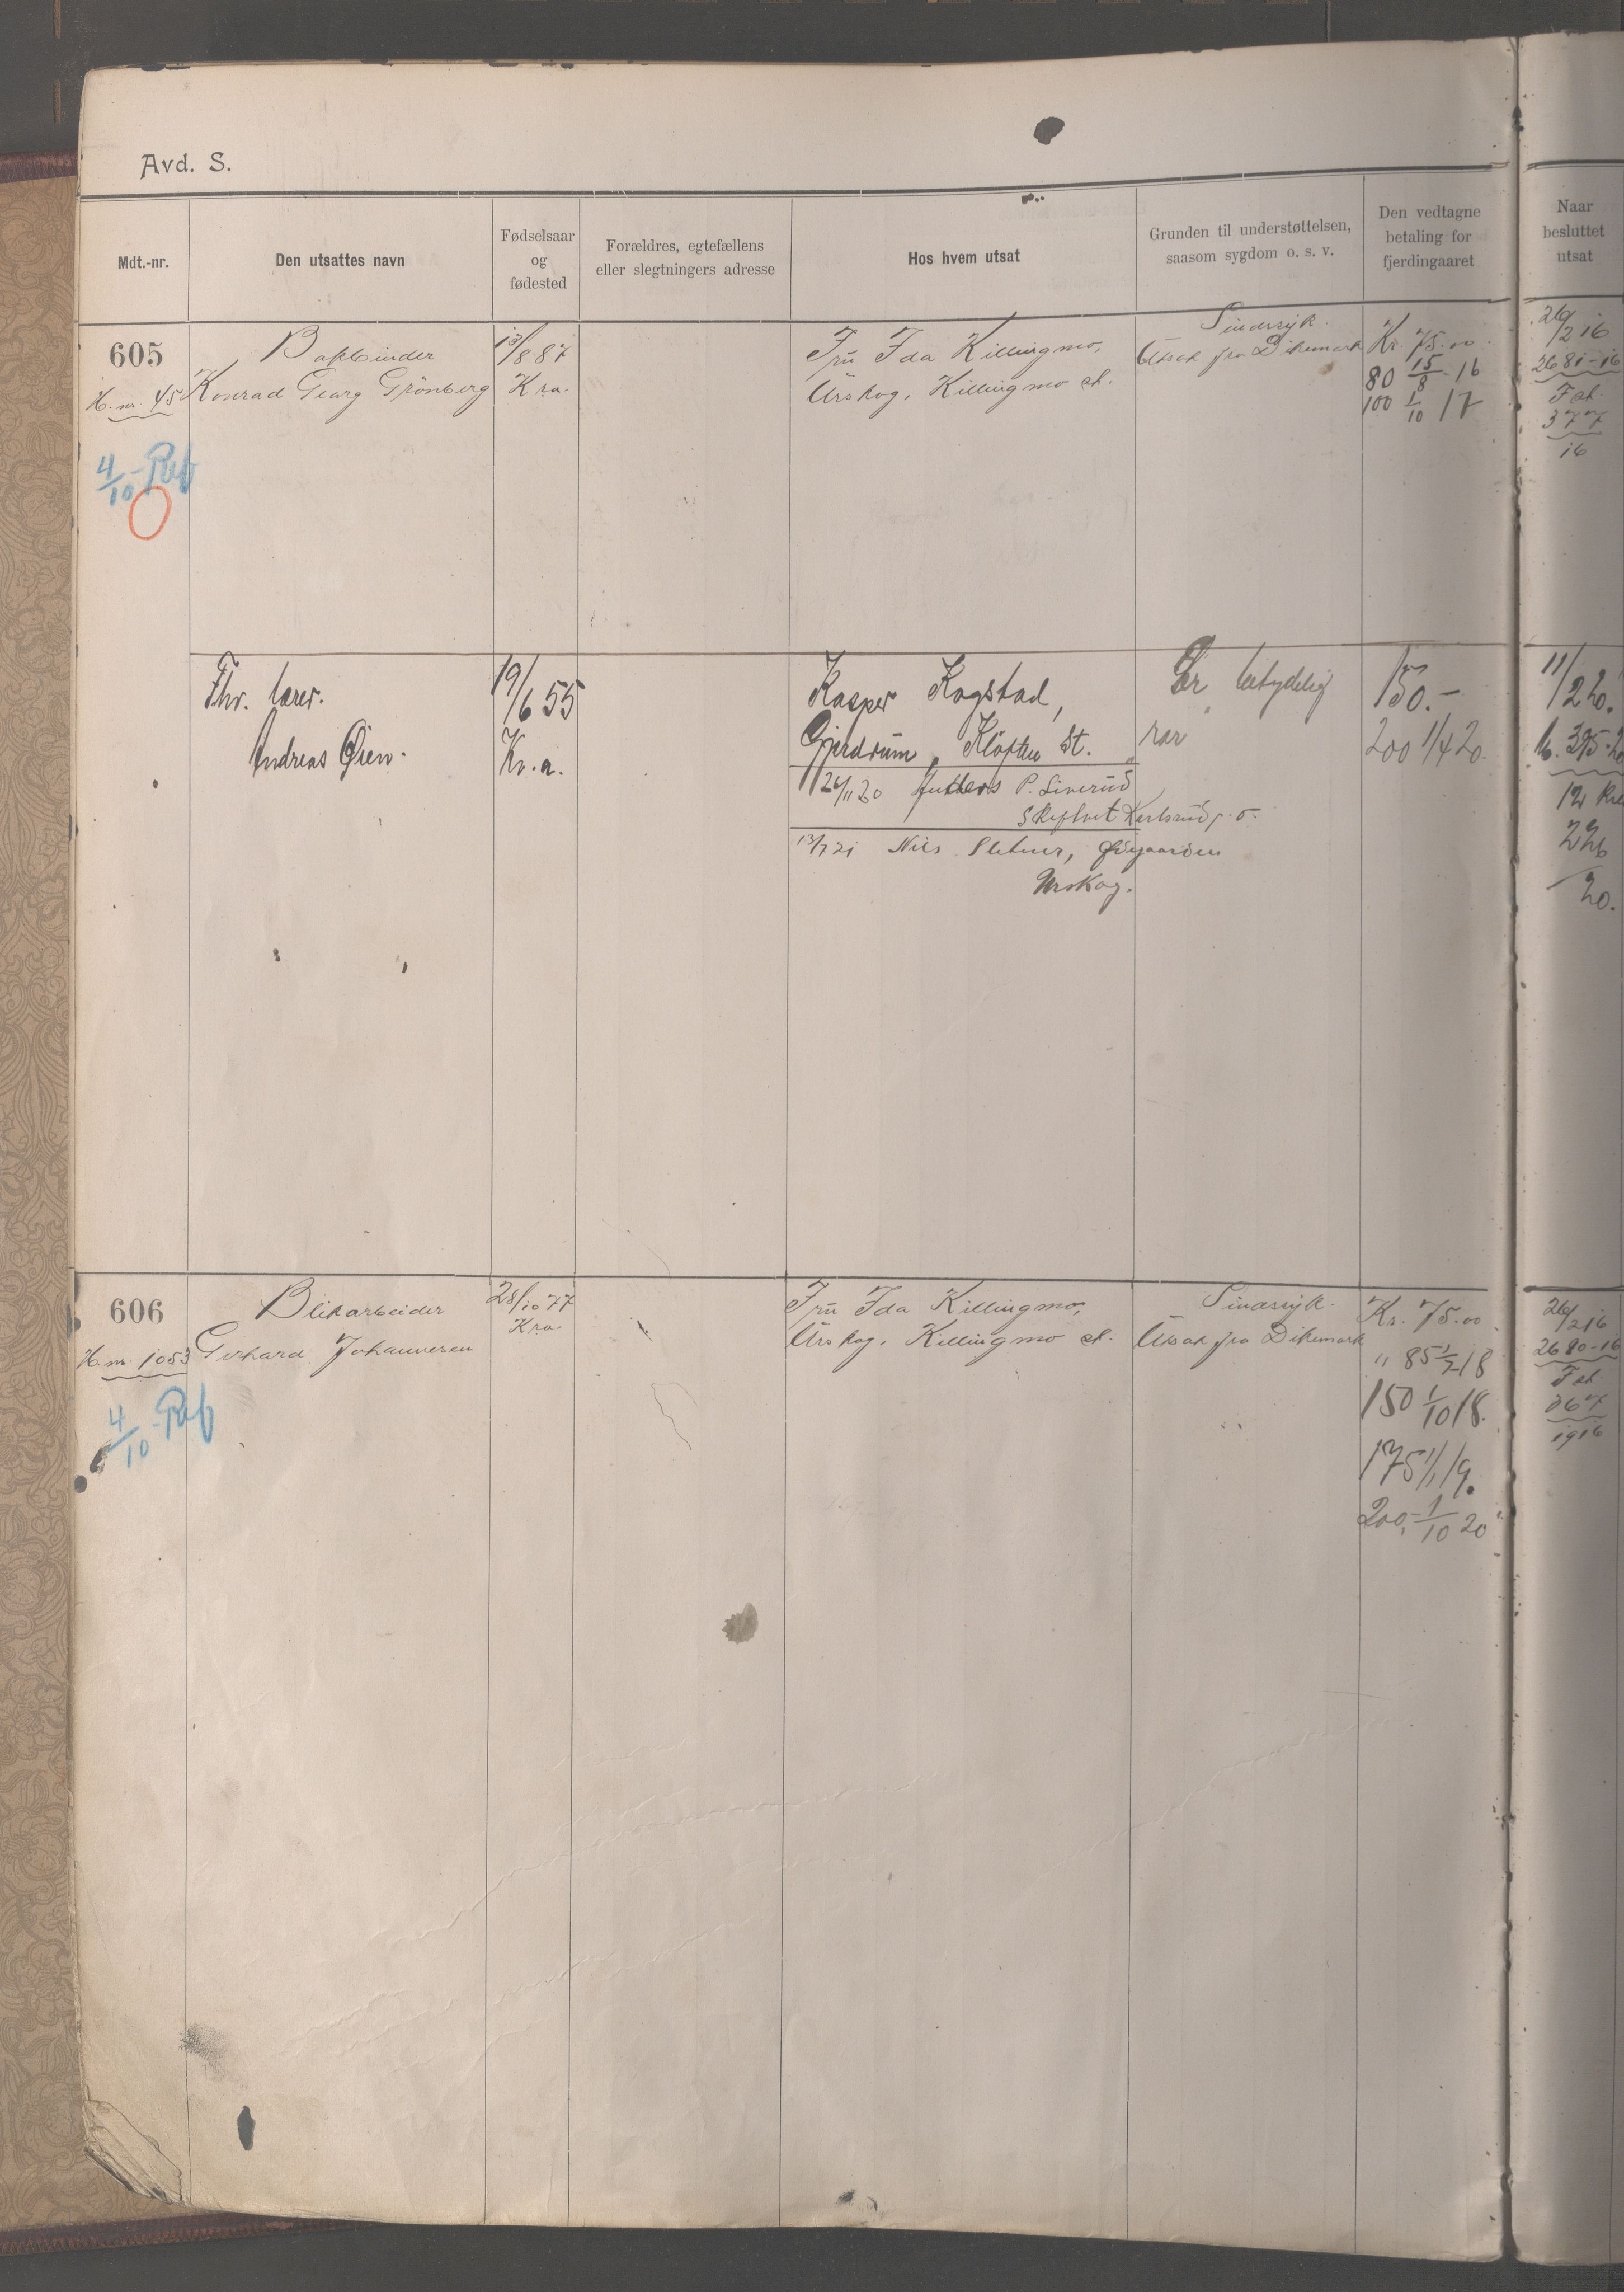 Avd. S.
Mdt.-nr.
Den utsattes navn
Fødselsaar
og
fødested
Forældres, egtefællens
eller slegtningers adresse
Hos hvem utsat
Grunden til understøttelsen,
saasom sygdom o. s. v.
Den vedtagne
betaling for
fjerdingaaret
Naar
besluttet
utsat
605
H. nr. 45
4/10 Ref
Bokbinder
Konrad Georg Grönberg
13/8 87
Kra.
Fru Ida Killingmo,
Urskog, Killingmo st.
Sinassyk.
Utsat fra Dikemark
Kr. 75.00
80 15/8-16
100 1/10 17
26/2 16
2681-16
Fat.
377
16
Fhv. lærer.
Andreas Øien.
19/6 55
Kr.a.
Kasper Kogstad,
Gjerdrum, Kløften St.
26/11 20 Anders P. Liverud
Skiptvet Karlsrud p. o.
13/7 21 Nils Sletner, Ødegaarden
Urskog.
Er betydelig
rar
150.-
200 1/4 20.
11/2 20.
226
20.
606
H. nr. 1053
4/10 Ref
Blikarbeider
Gerhard Johannesen
28/10 77
Kra.
Fru Ida Killingmo,
Urskog, Killingmo st.
Sinassyk.
Utsat fra Dikemark
Kr. 75.00
" 85 1/2 18
150 1/10 18.
175 1/1 19.
200,- 1/10 20
26/2 16
2680-16
Fat.
367
1916